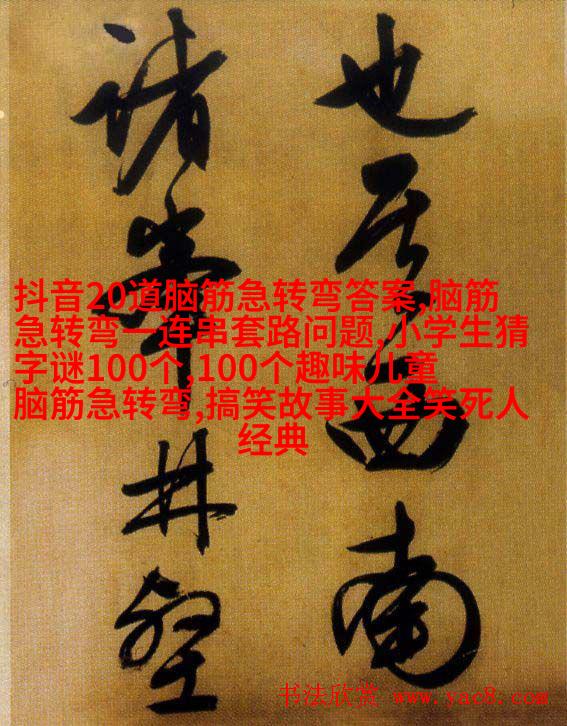 也其西南
諸峯林壑
抖音20道脑筋急转弯答案,脑筋
急转弯一连串套路问题,小学生猜
字谜100个,100个趣味儿童
脑筋急转弯,搞笑故事大全笑死人
经典
书法欣赏 www.yac8.com